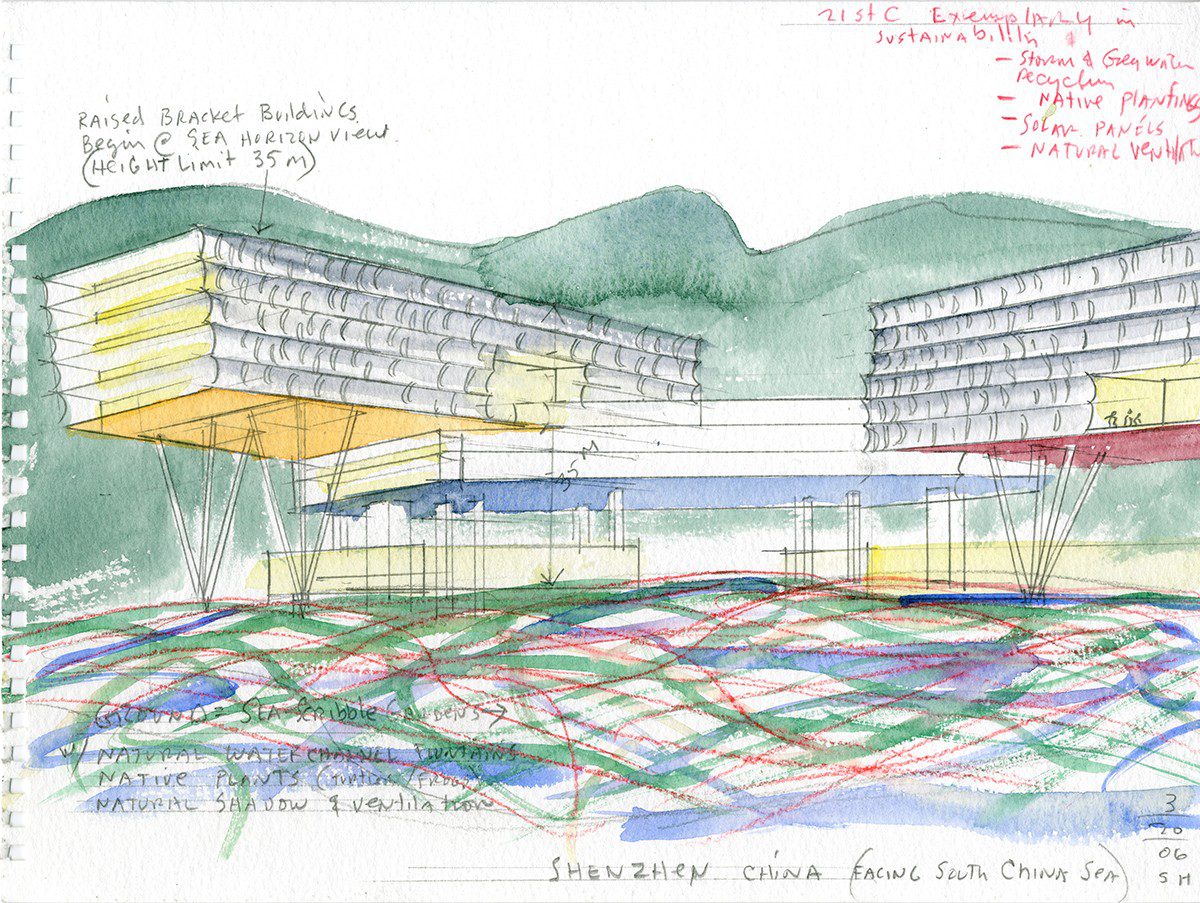 21st C Exemplary in
Sustainability
- Storm & Grey water
recycling
- Native planting
- Solar panels
- Natural Ventilat
Raised Bracket Buildings
Begin @ Sea Horizon view
(Height Limit 35 m)
35 M
Ground = Sea Scribble Gardens →
w/ Natural water channel fountains
Native Plants (turtles / frogs)
Natural Shadow & ventilation
Shenzhen China (Facing South China Sea)
3
20
06
SH